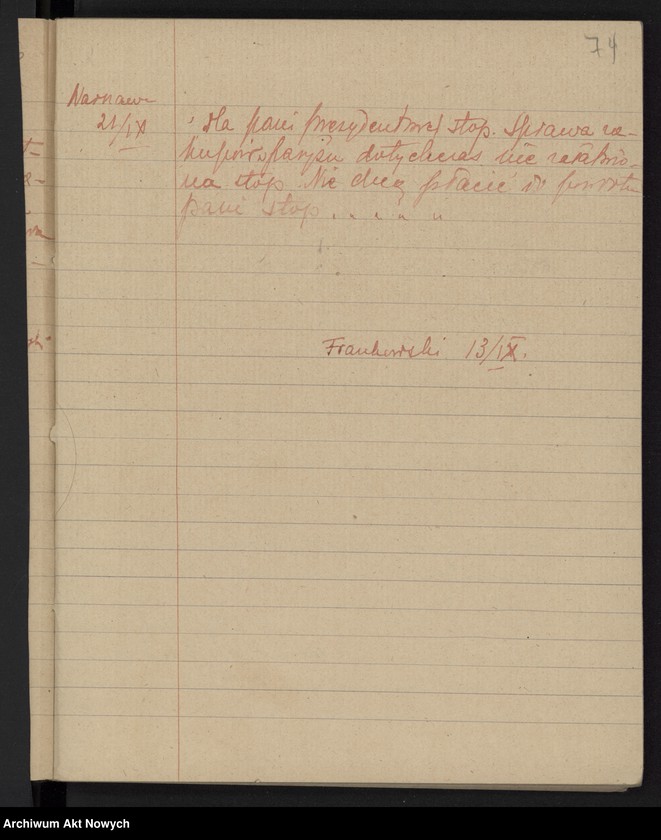 74
Warszawa
21/IX
Dla pani prezydentowej stop. Sprawa za-
kupów w paryżu dotychczas nie załatwio-
na stop. Nie chcą płacić do powrotu
pani stop . . . . "
Frankowski 13/IX.
Archiwum Akt Nowych